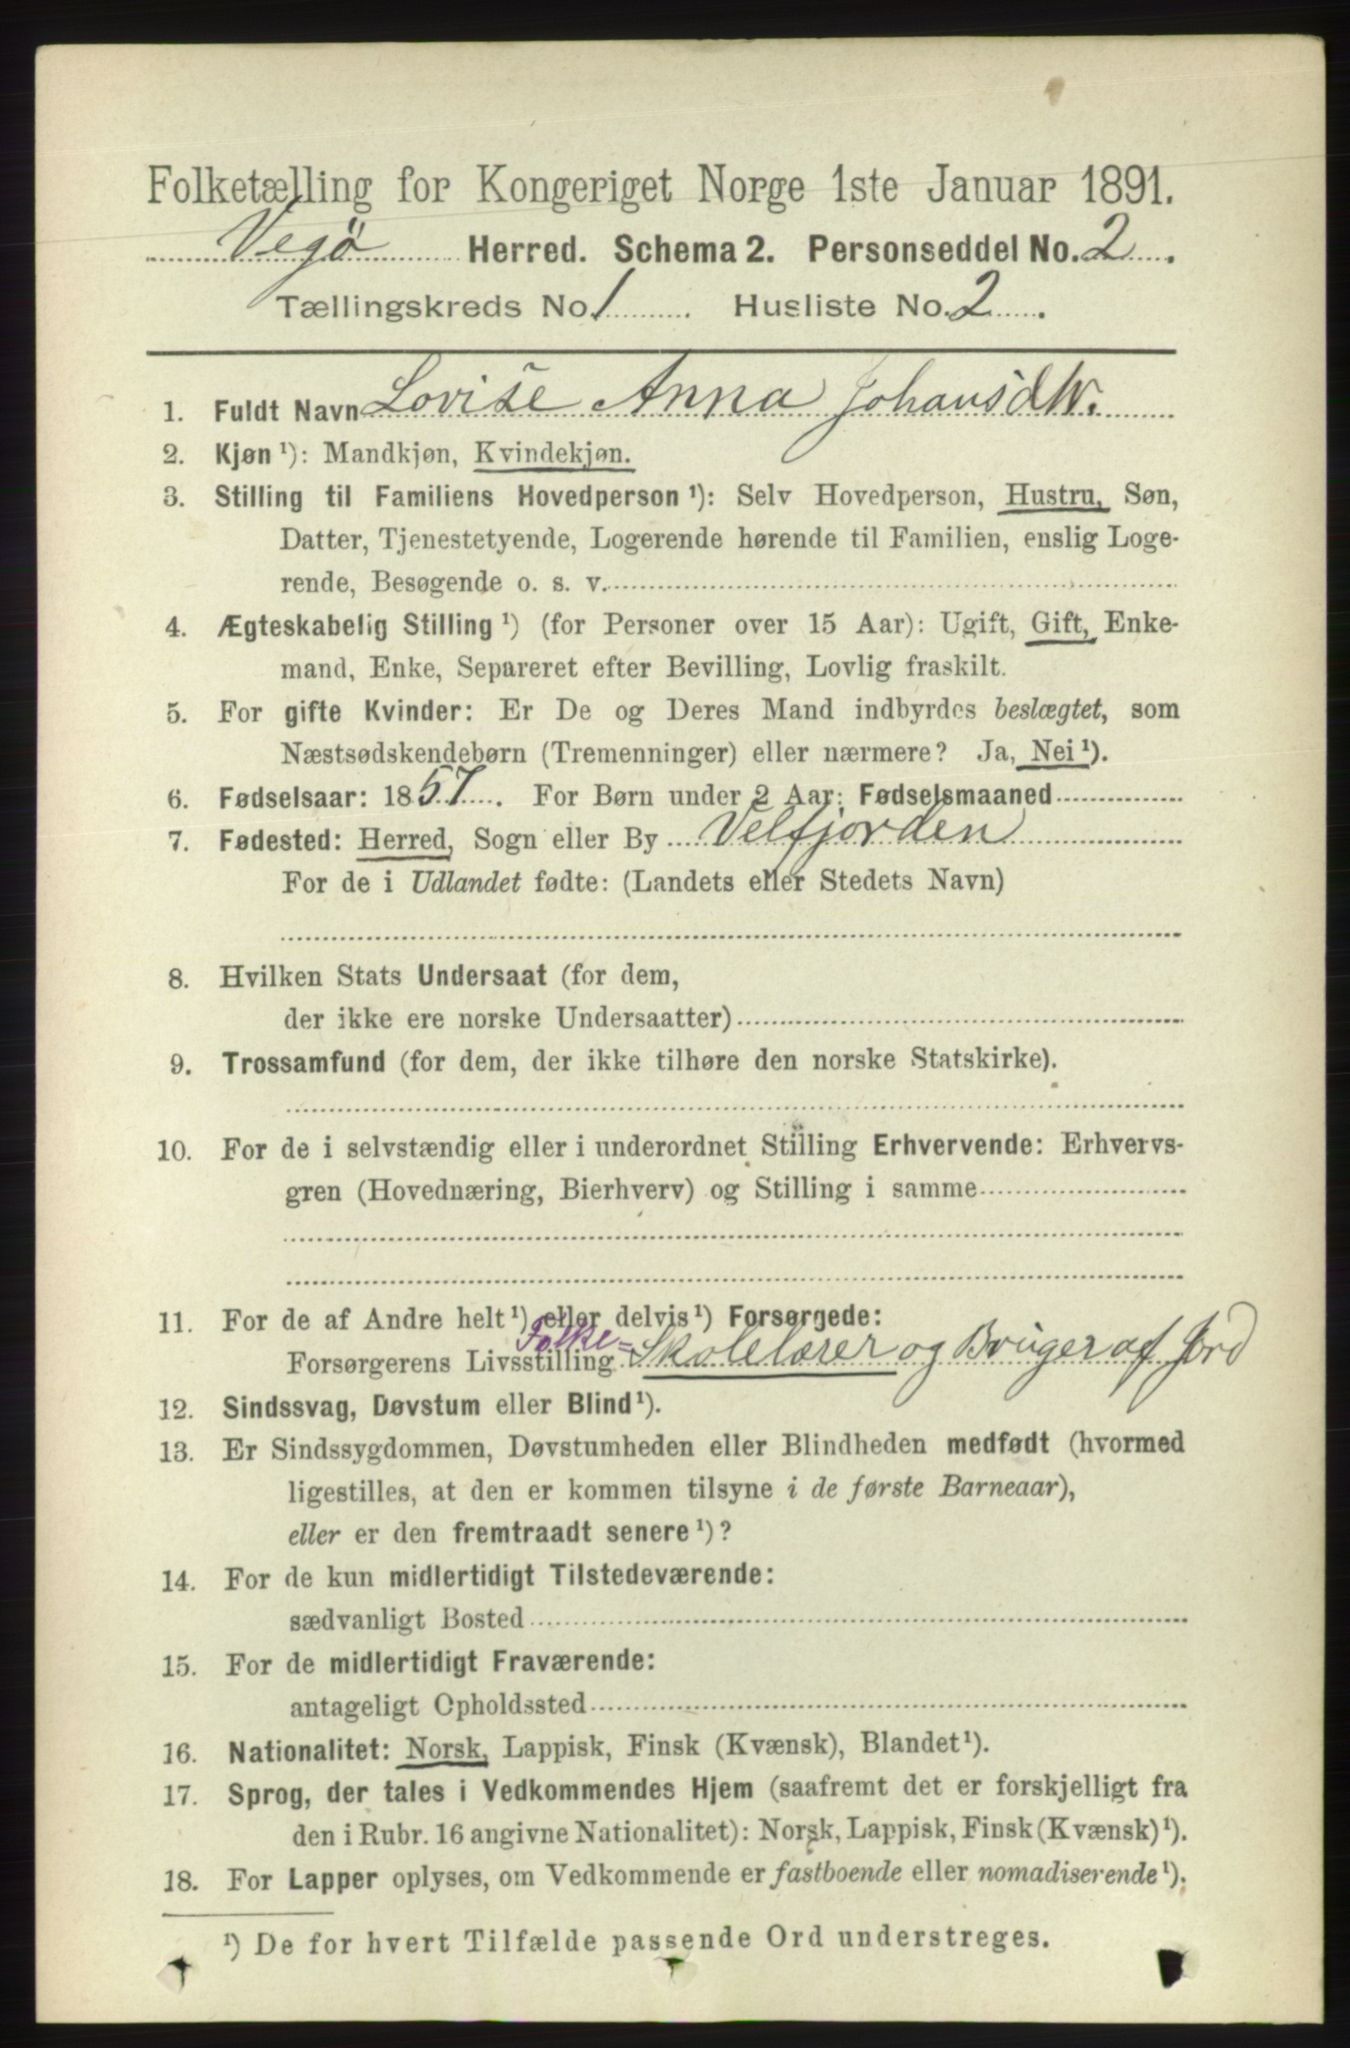 Folketælling for Kongeriget Norge 1ste Januar 1891.
Vegø Herred. Schema 2. Personseddel No. 2
Tællingskreds No. 1 Husliste No. 2
1. Fuldt Navn Lovise Anna Johansdtr.
2. Kjøn ¹): Mandkjøn, Kvindekjøn.
3. Stilling til Familiens Hovedperson ¹): Selv Hovedperson, Hustru, Søn,
Datter, Tjenestetyende, Logerende hørende til Familien, enslig Loge-
rende, Besøgende o. s. v.
4. Ægteskabelig Stilling ¹) (for Personer over 15 Aar): Ugift, Gift, Enke-
mand, Enke, Separeret efter Bevilling, Lovlig fraskilt.
5. For gifte Kvinder: Er De og Deres Mand indbyrdes beslægtet, som
Næstsødskendebørn (Tremenninger) eller nærmere? Ja, Nei ¹).
6. Fødselsaar: 1857. For Børn under 2 Aar: Fødselsmaaned
7. Fødested: Herred, Sogn eller By Velfjorden
For de i Udlandet fødte: (Landets eller Stedets Navn)
8. Hvilken Stats Undersaat (for dem,
der ikke ere norske Undersaatter)
9. Trossamfund (for dem, der ikke tilhøre den norske Statskirke).
10. For de i selvstændig eller i underordnet Stilling Erhvervende: Erhvervs-
gren (Hovednæring, Bierhverv) og Stilling i samme
11. For de af Andre helt ¹) eller delvis ¹) Forsørgede:
Forsørgerens Livsstilling Folke= Skolelærer og Bruger af Jord
12. Sindssvag, Døvstum eller Blind ¹).
13. Er Sindssygdommen, Døvstumheden eller Blindheden medfødt (hvormed
ligestilles, at den er kommen tilsyne i de første Barneaar),
eller er den fremtraadt senere ¹)?
14. For de kun midlertidigt Tilstedeværende:
sædvanligt Bosted
15. For de midlertidigt Fraværende:
antageligt Opholdssted
16. Nationalitet: Norsk, Lappisk, Finsk (Kvænsk), Blandet ¹).
17. Sprog, der tales i Vedkommendes Hjem (saafremt det er forskjelligt fra
den i Rubr. 16 angivne Nationalitet): Norsk, Lappisk, Finsk (Kvænsk) ¹).
18. For Lapper oplyses, om Vedkommende er fastboende eller nomadiserende ¹).
¹) De for hvert Tilfælde passende Ord understreges.